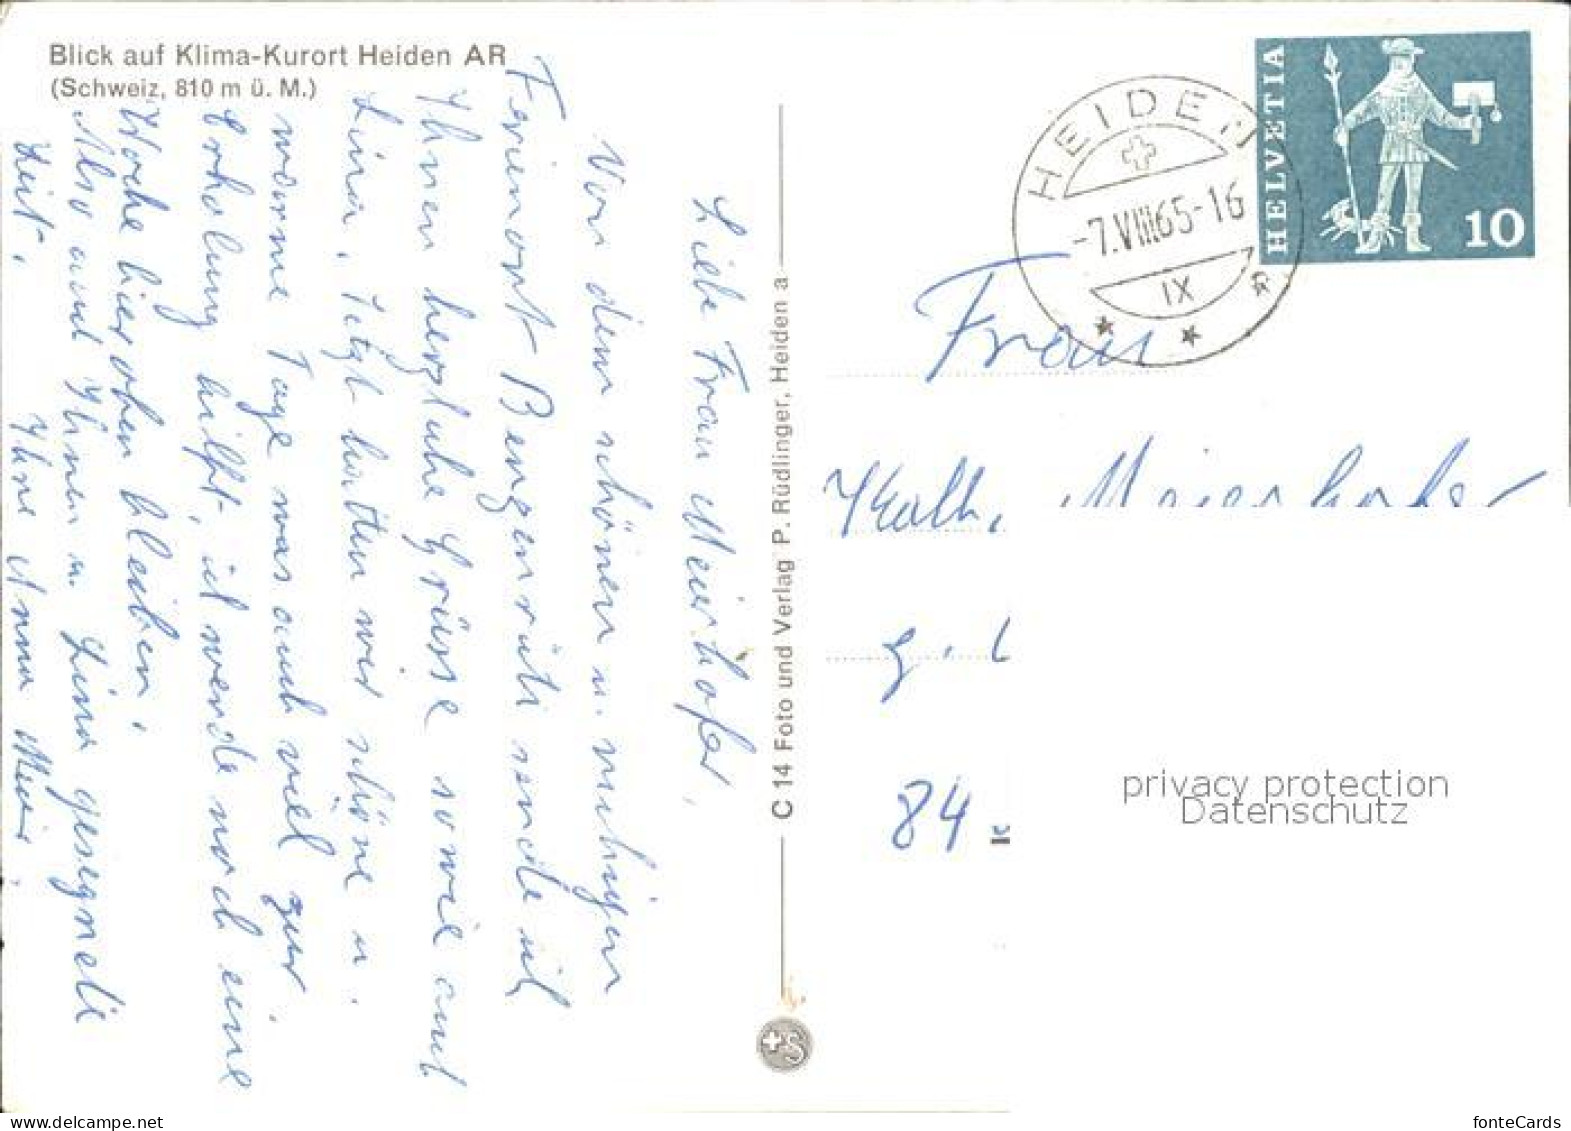 Blick auf Klima-Kurort Heiden AR
(Schweiz, 810 m ü. M.)
Liebe Frau Meierhofer,
Von dem schönen u. ruhigen
Ferienort Bengenrüti sende ich
Ihnen herzliche Grüsse sowie auch
Lina. Jetzt hatten wir schöne u.
warme Tage was auch viel zur
Erholung hilft, ich werde noch eine
Woche hier oben bleiben,
Also auch Ihnen u. Lina gesegnete
Zeit.
Ihre Anna Meier.
C 14 Foto und Verlag P. Rüdlinger, Heiden a
HEIDEN
-7.VIII65-16
IX
HELVETIA
10
Frau
Kath. Meierhofer
84
privacy protection
Datenschutz
fonteCards